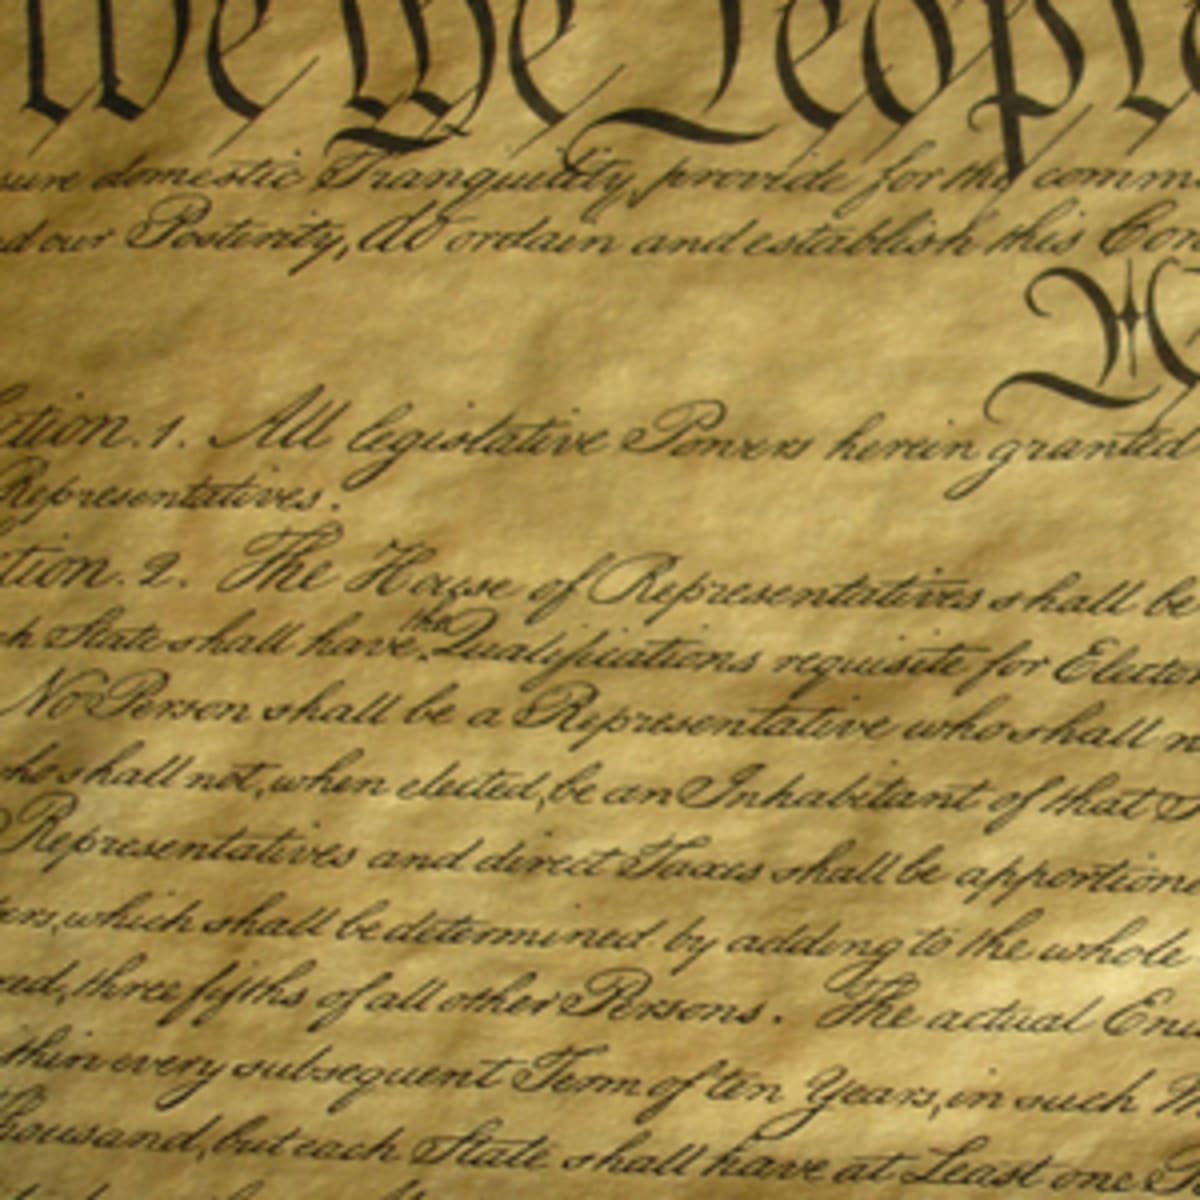 We the People
sure domestic Tranquility, provide for the comm
d our Posterity, do ordain and establish this Con
ction. 1. All legislative Powers herein granted
Representatives.
tion. 2. The House of Representatives shall be
ch State shall have the Qualifications requisite for Elector
No Person shall be a Representative who shall n
who shall not, when elected, be an Inhabitant of that S
Representatives and direct Taxes shall be apportione
bers, which shall be determined by adding to the whole
xed, three fifths of all other Persons. The actual Enu
thin every subsequent Term of ten Years, in such M
housand, but each State shall have at Least one R